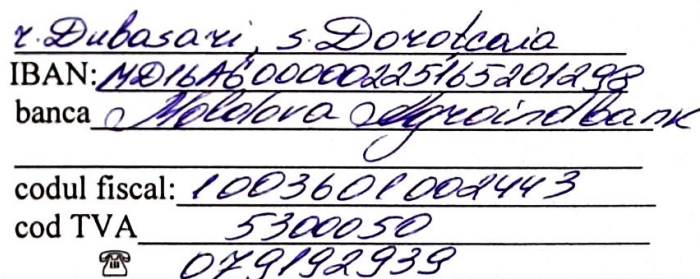 r.Dubasari, s.Dorotcaia
IBAN: MD16AG000000225165201298
banca Moldova Agroindbank
codul fiscal: 1003601002443
cod TVA 5300050
☎ 079192939